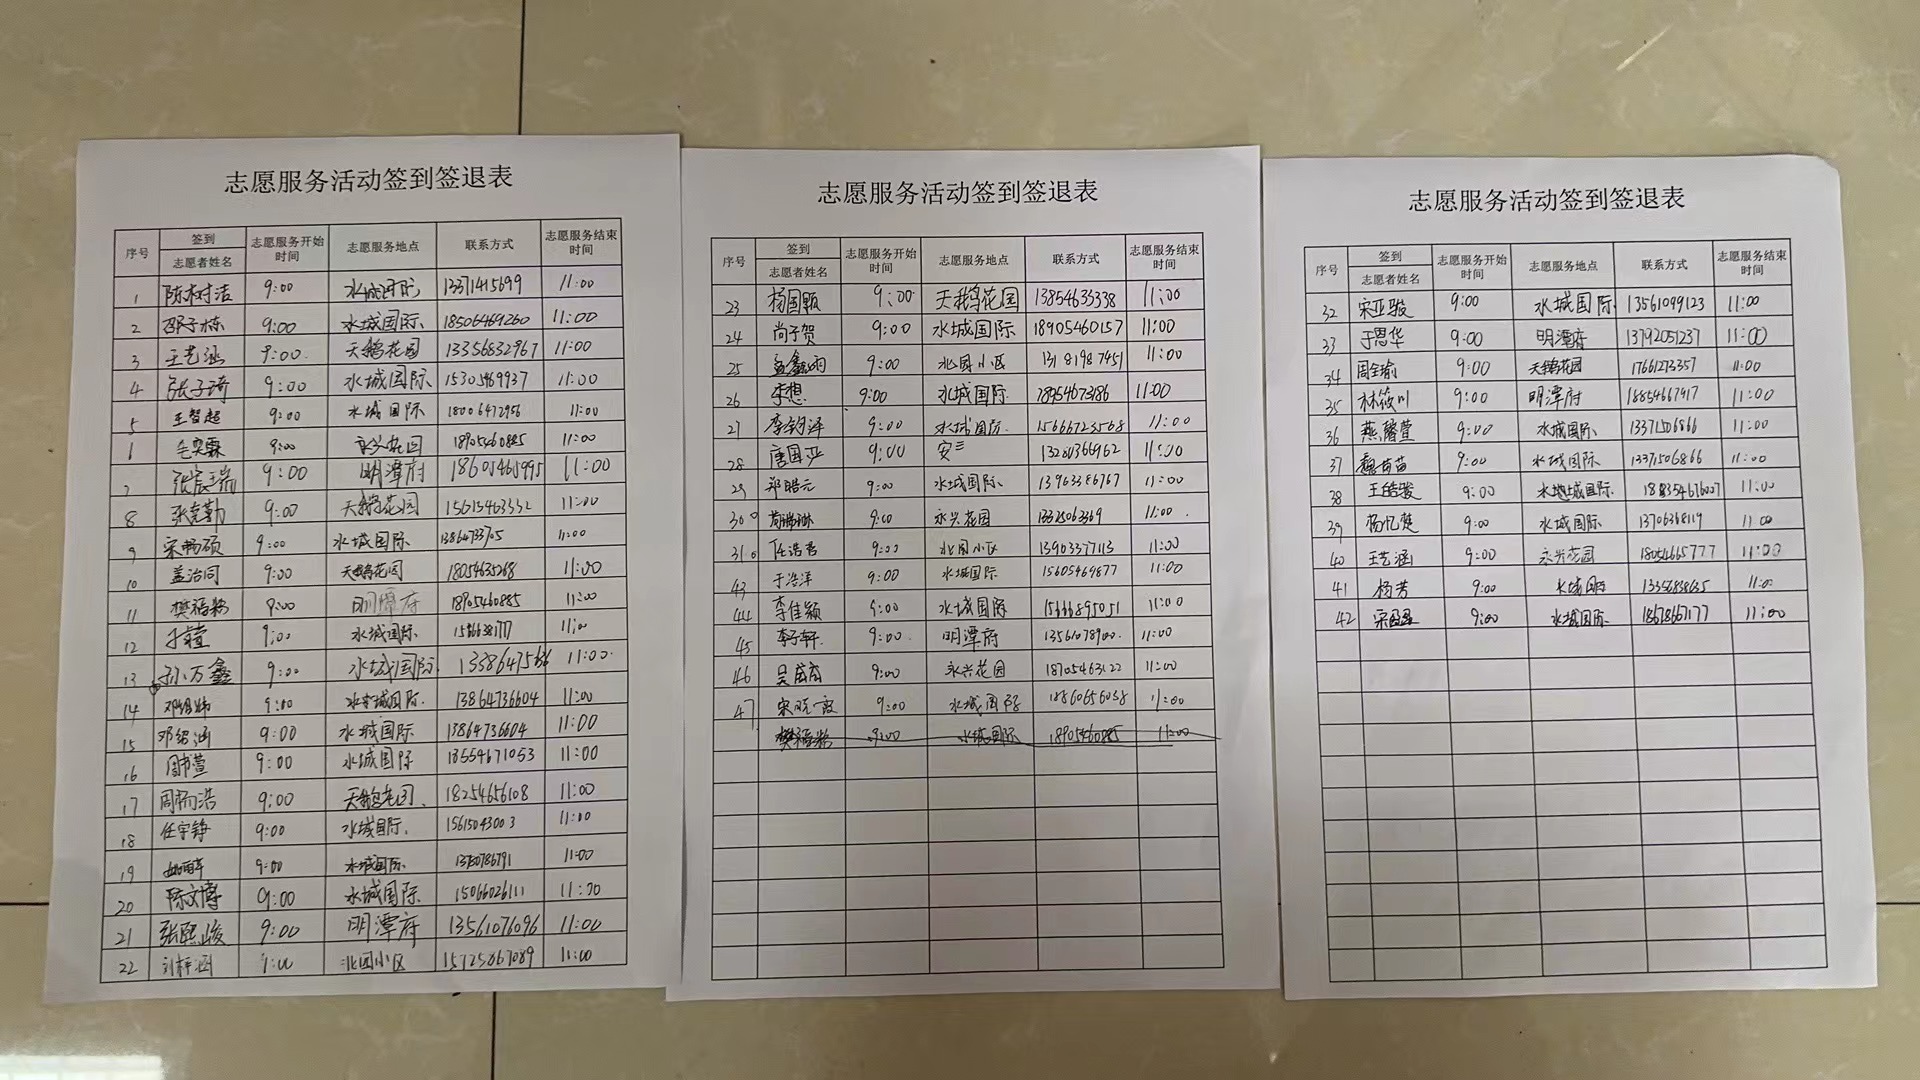 志愿服务活动签到签退表
序号 签到 志愿者姓名 志愿服务开始时间 志愿服务地点 联系方式 志愿服务结束时间
1 陈树洁 9:00 13371415699 11:00
2 邵子栋 9:00 水城国际 18506469260 11:00
3 王艺涵 9:00 天鹅花园 13356632967 11:00
4 张子琦 9:00 水城国际 15305469937 11:00
5 王智超 9:00 水城国际 18006472956 11:00
6 毛奕霖 9:00 永兴花园 18905460885 11:00
7 张宸瑞 9:00 明潭府 18605465995 11:00
8 张克勤 9:00 天鹅花园 15615463332 11:00
9 宋畅硕 9:00 水城国际 13864733705 11:00
10 盖治同 9:00 天鹅花园 18054635268 11:00
11 樊福粉 9:00 明潭府 18905460885 11:00
12 9:00 水城国际 11:00
13 孙万鑫 9:00 水城国际 11:00
14 9:00 水城国际 13864736604 11:00
15 邓绍涵 9:00 水城国际 13864736604 11:00
16 周书萱 9:00 水城国际 18554671053 11:00
17 9:00 天鹅花园 18254656108 11:00
18 任宇铮 9:00 水城国际 11:00
19 9:00 水城国际 11:00
20 陈文博 9:00 水城国际 15066026111 11:00
21 张熙峻 9:00 明潭府 13561076096 11:00
22 刘梓涵 9:00 北园小区 15725867089 11:00
志愿服务活动签到签退表
序号 签到 志愿者姓名 志愿服务开始时间 志愿服务地点 联系方式 志愿服务结束时间
23 杨国颖 9:00 天鹅花园 13854633338 11:00
24 尚子贺 9:00 水城国际 18905460157 11:00
25 孟鑫雨 9:00 北园小区 13181987451 11:00
26 李想 9:00 水城国际 18954673186 11:00
27 李钧泽 9:00 水城国际 15666723568 11:00
28 唐国严 9:00 安兰 13280366962 11:00
29 郑皓元 9:00 水城国际 13963386767 11:00
30 9:00 永兴花园 11:00
31 任浩君 9:00 北园小区 13903377113 11:00
43 于浩洋 9:00 水城国际 15605469877 11:00
44 李佳颖 9:00 水城国际 15666895051 11:00
45 李子轩 9:00 明潭府 11:00
46 吴苗苗 9:00 永兴花园 18705463122 11:00
47 9:00 水城国际 18860656038 11:00
樊福粉 9:00 水城国际 18905460885 11:00
志愿服务活动签到签退表
序号 签到 志愿者姓名 志愿服务开始时间 志愿服务地点 联系方式 志愿服务结束时间
32 宋亚骏 9:00 水城国际 13561099123 11:00
33 于恩华 9:00 明潭府 13792051237 11:00
34 周全瑜 9:00 天鹅花园 17661273357 11:00
35 林筱川 9:00 明潭府 18854667917 11:00
36 燕馨萱 9:00 水城国际 13371506866 11:00
37 魏苗苗 9:00 水城国际 13371506866 11:00
38 王皓骏 9:00 水城国际 11:00
39 杨忆楚 9:00 水城国际 13706368119 11:00
40 王艺涵 9:00 永兴花园 18054665777 11:00
41 杨芳 9:00 水城国际 11:00
42 宋盈盈 9:00 水城国际 18678667177 11:00